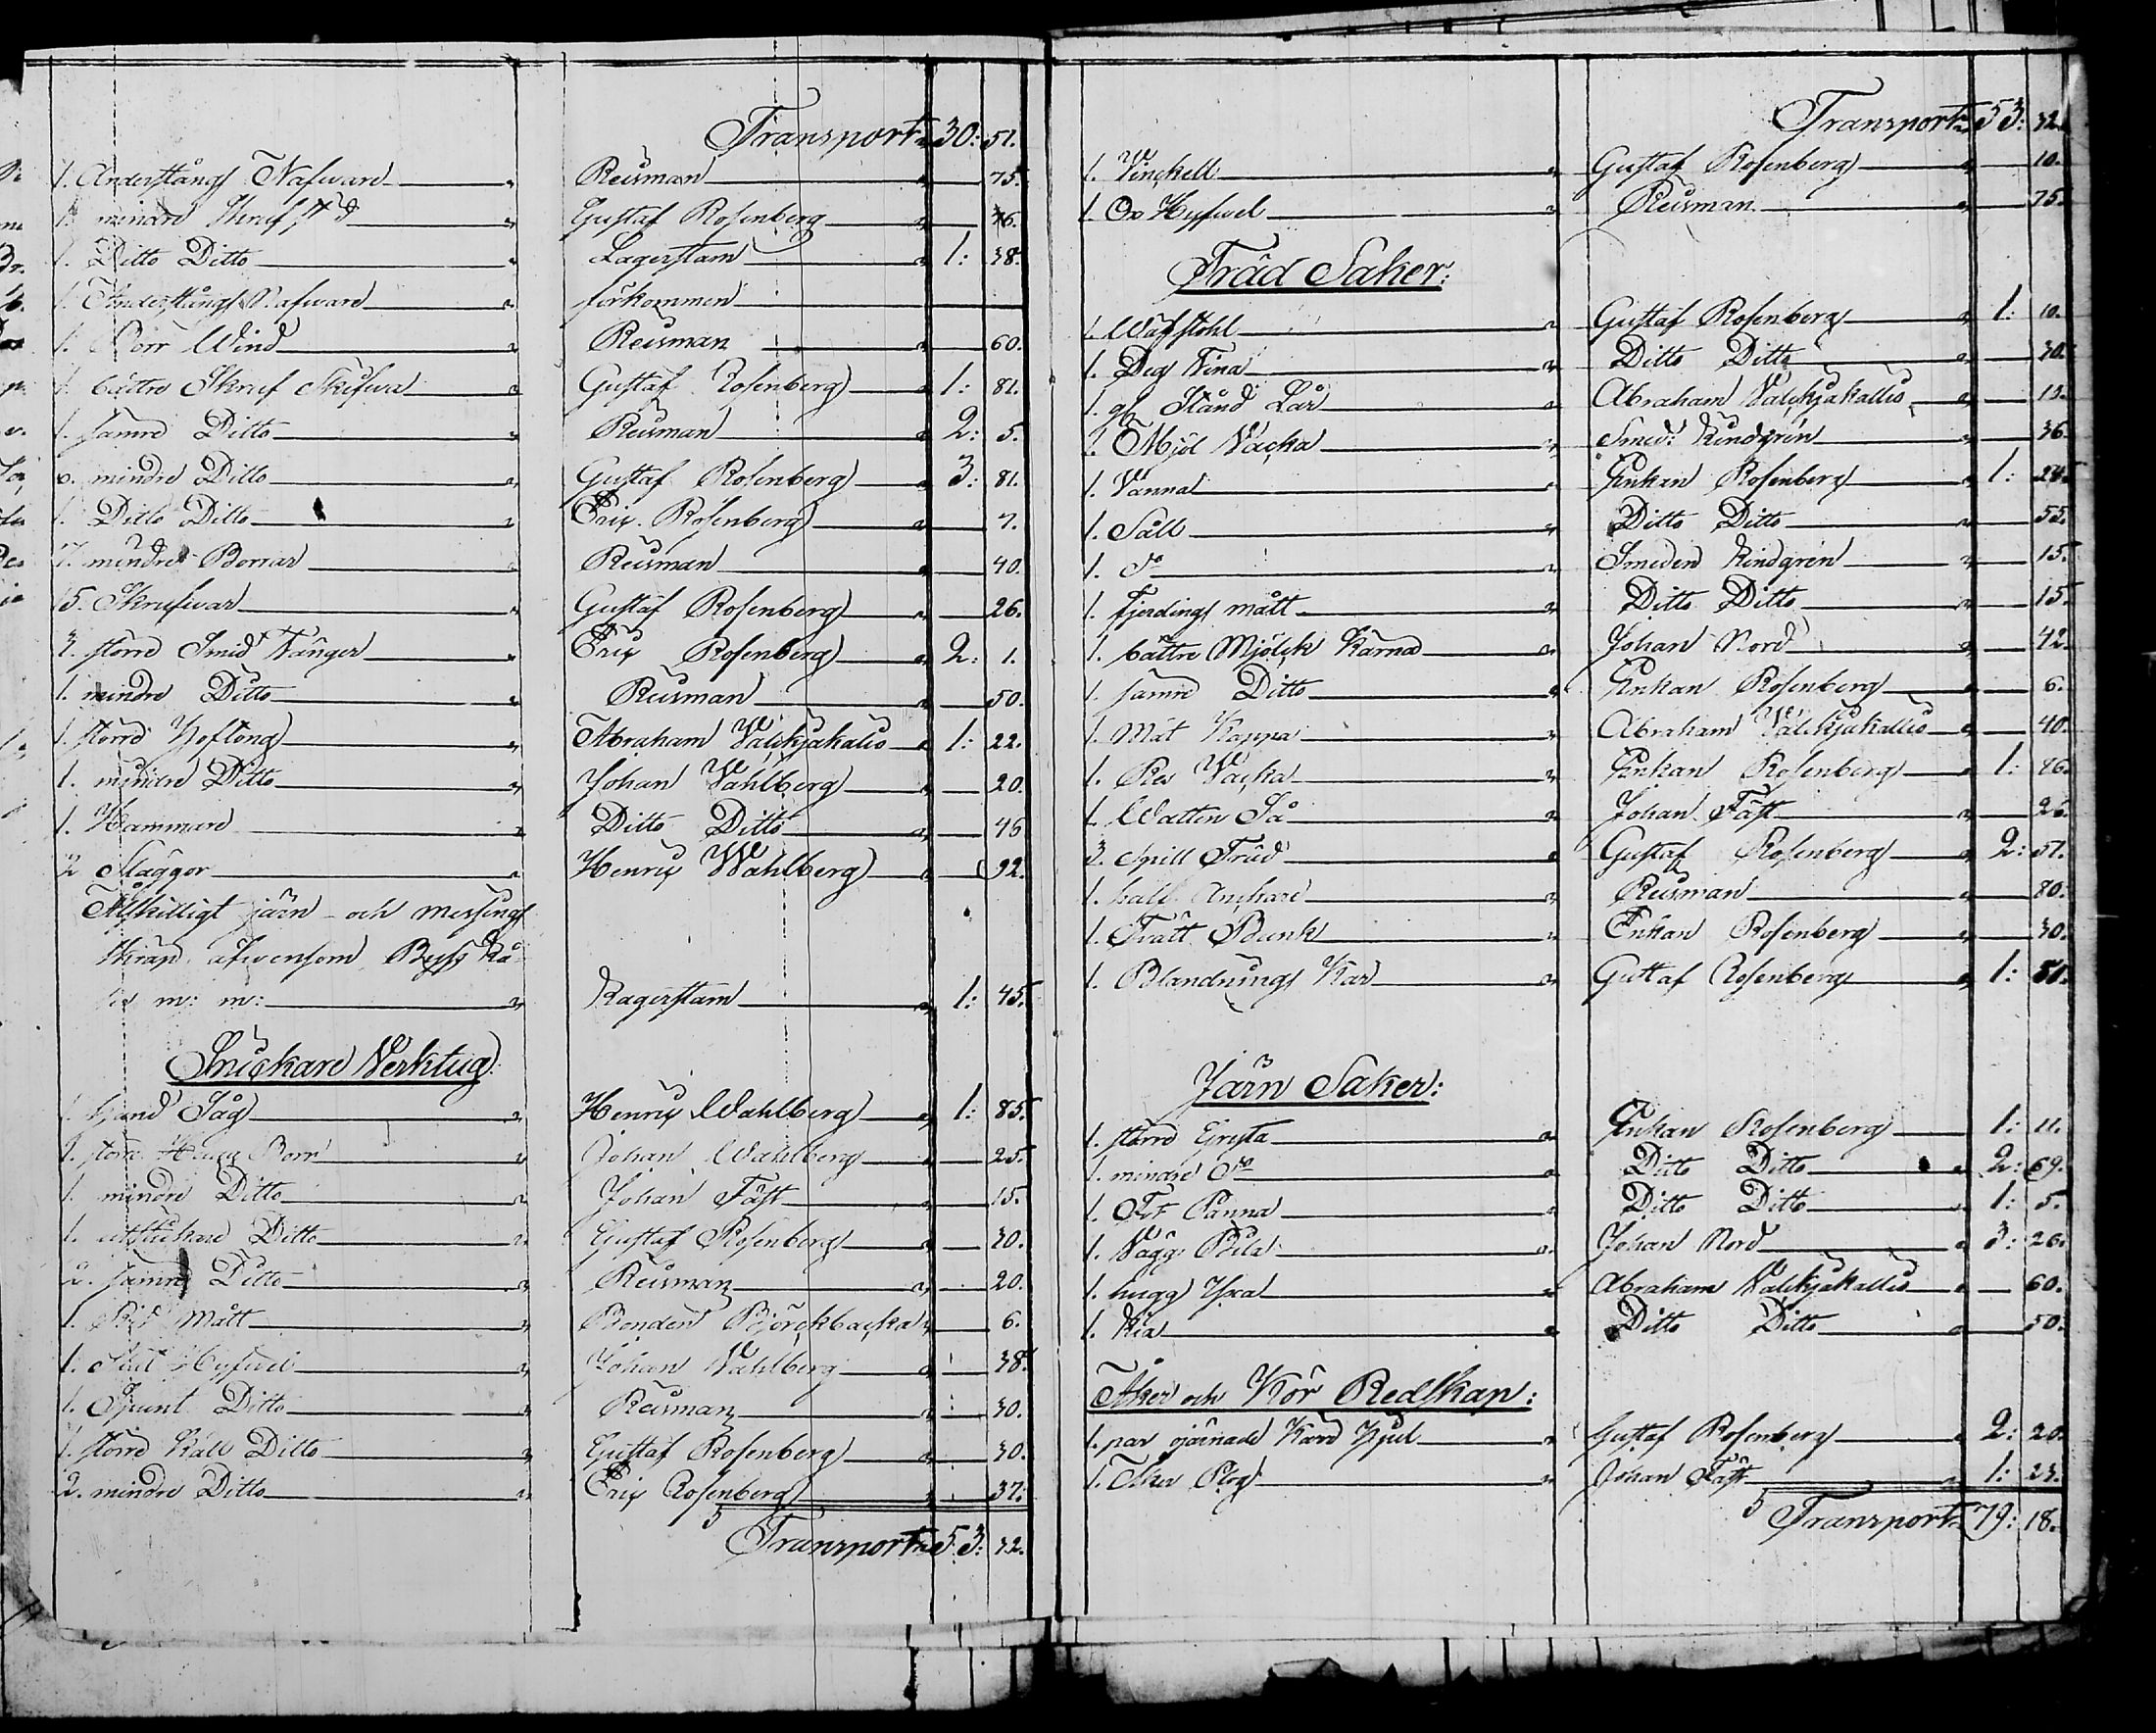 Transport 30: 51.
1. Anderstångs Nafware Reusman 75.
1. mindre Skruf, Gustaf Rosenberg 36.
1. Ditto Ditto Lagerstam 1: 38.
1. Anderstångs Nafware förkommen
1. Borr Wind Reusman 60.
1. bättre Skruf Skifwa Gustaf Rosenberg 1: 81.
1. sämre Ditto Reusman 2: 5.
6. mindre Ditto Gustaf Rosenberg 3: 81.
1. Ditto Ditto Eric Rosenberg 7.
7. mindre Borrar Reusman 40.
15. Skrufwar Gustaf Rosenberg 26.
3. större Smid Tänger Eric Rosenberg 2: 1.
1. mindre Ditto Reusman 50.
1. större Hoftång Abraham Välikjakalio 1: 22.
1. mindre Ditto Johan Wahlberg 20.
1. Hammare Ditto Ditto 46
2 Släggor Henric Wahlberg 92.
Åtskilligt järn och messings
skräp äfwensom Byss Kå
lor m: m: Lagerstam 1: 45.
Snickare Verktug:
1. Hand Såg Henric Wahlberg 1: 85.
1. större Borr Johan Wahlberg 25.
1. mindre Ditto Johan Fäst 15.
1. Ditto Gustaf Rosenberg 30.
2. sämre Ditto Reusman 20.
1. Mått Bonden Björckbacka 6.
1. Hyfwel Johan Wahlberg 38.
1. Spunt Ditto Reusman 30.
1. större Käll Ditto Gustaf Rosenberg 30.
2. mindre Ditto Eric Rosenberg 37.
Transport 53: 32.
Transport 53: 32.
1. Vinckell Gustaf Rosenberg 10.
1. Ox Hyfwel Reusman 75.
Träd Saker:
1. Wäfstohl Gustaf Rosenberg 1: 10.
1. Deg Tina Ditto Ditto 30.
1. gl. Stånd Lår Abraham Välikjakallio 13.
1. Mjöl Vacka Smed: Lindgrén 36.
1. Vanna Enkan Rosenberg 1: 24.
1. Såll Ditto Ditto 55.
1. do Smeden Lindgrén 15.
1. fjerdings mått Ditto Ditto 15.
1. bättre Mjölck Kärna Johan Nord 42.
1. sämre Ditto Enkan Rosenberg 6.
1. Mat Kappa Abraham Välikjakallio 40.
1. Res Vacka Enkan Rosenberg 1: 86.
1. Watten Så Johan Fäst 26.
3. Spill Träd Gustaf Rosenberg 2: 51.
1. half Anckare Reusman 80.
1. Tvätt Bunk Enkan Rosenberg 30.
1. Blandnings Kar Gustaf Rosenberg 1: 51.
Järn Saker:
1. större Gryta Enkan Rosenberg 1: 11.
1. mindre do Ditto Ditto 2: 69.
1. Panna Ditto Ditto 1: 5.
1. Vägg Bila Johan Nord 3: 26.
1. hugg Yxa Abraham Välikjakallio 60.
1. Lia Ditto Ditto 50.
Åker och Kör Redskap:
1. par ojärnade Kärr Hjul Gustaf Rosenberg 2: 20.
1. Åker Plog Johan Fäst 1: 23.
Transport 79: 18.